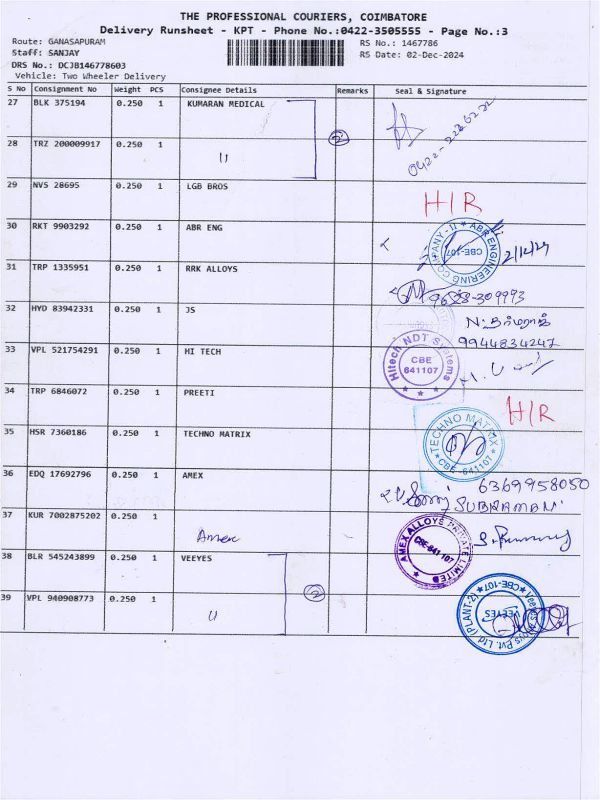 THE PROFESSIONAL COURIERS, COIMBATORE
Delivery Runsheet - KPT - Phone No.:0422-3505555 - Page No.:3
Route: GANASAPURAM
RS No.: 1467786
Staff: SANJAY
RS Date: 02-Dec-2024
DRS No.: DCJB146778603
Vehicle: Two Wheeler Delivery
S No Consignment No Weight PCS Consignee Details Remarks Seal & Signature
27 BLK 375194 0.250 1 KUMARAN MEDICAL
28 TRZ 200009917 0.250 1 〃 2
29 NVS 28695 0.250 1 LGB BROS H/R
30 RKT 9903292 0.250 1 ABR ENG
ABR ENGINEERING COMPANY-II CBE-107 2/12/24
31 TRP 1335951 0.250 1 RRK ALLOYS 9628-309993
32 HYD 83942331 0.250 1 JS
N. தர்மராஜ்
9944834247
33 VPL 521754291 0.250 1 HI TECH
Hitech NDT Systems CBE 641107
34 TRP 6846072 0.250 1 PREETI H/R
35 HSR 7360186 0.250 1 TECHNO MATRIX
TECHNO MATRIX CBE-641107
36 EDQ 17692796 0.250 1 AMEX 6369958050
SUBRAMANI
37 KUR 7002875202 0.250 1 Amex
AMEX ALLOYS PRIVATE LIMITED CBE-641 107
38 BLR 545243899 0.250 1 VEEYES 2
39 VPL 940908773 0.250 1 〃
Veeyes Alloys Pvt. Ltd (PLANT-2) CBE-107 VEEYES